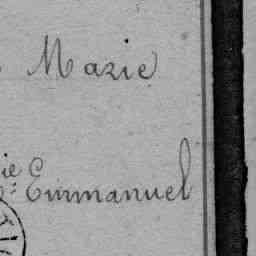 Marie
ie
e: Emmanuel